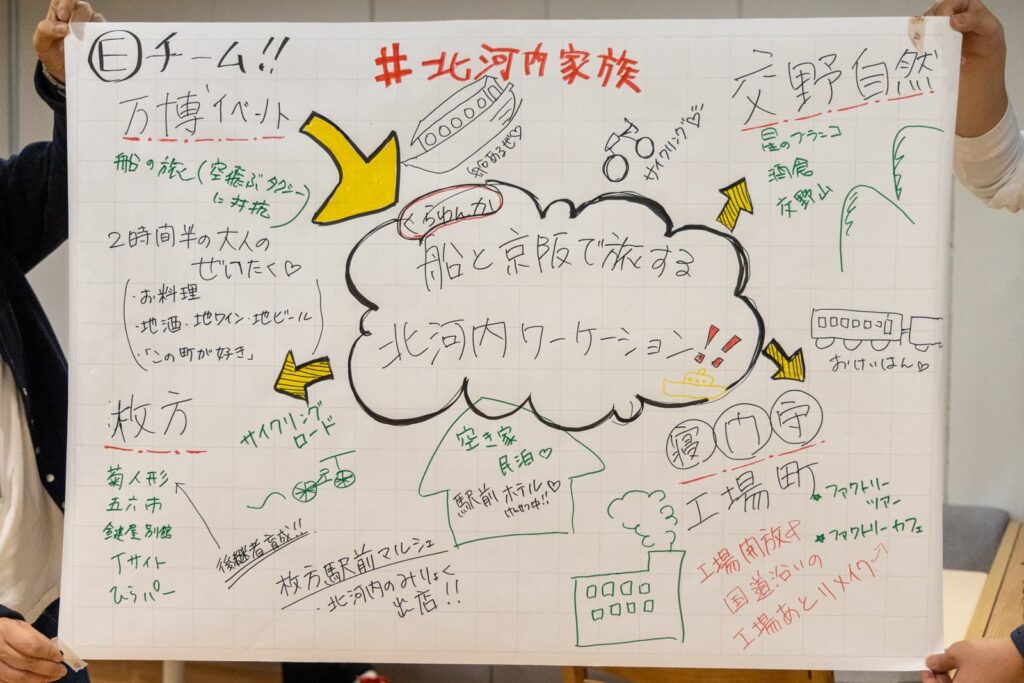 Eチーム!!
#北河内家族
万博イベント
船の旅(空飛ぶタクシー
に対抗)
2時間半の大人の
ぜいたく♡
・お料理
・地酒・地ワイン・地ビール
・「この町が好き」
船あるぜ♡
サイクリング♡
交野自然
星のブランコ
酒倉
交野山
くらわんか
船と京阪で旅する
北河内ワーケーション!!
おけいはん♡
枚方
菊人形
五六市
鍵屋別館
Tサイト
ひらパー
後継者育成!!
サイクリング
ロード
空き家
民泊♡
駅前ホテル♡
けんせつ中!!
枚方駅前マルシェ
・北河内のみりょく
出店!!
寝内守
工場町
★ファクトリー
ツアー
★ファクトリーカフェ
工場開放&
国道沿いの
工場あとリメイク